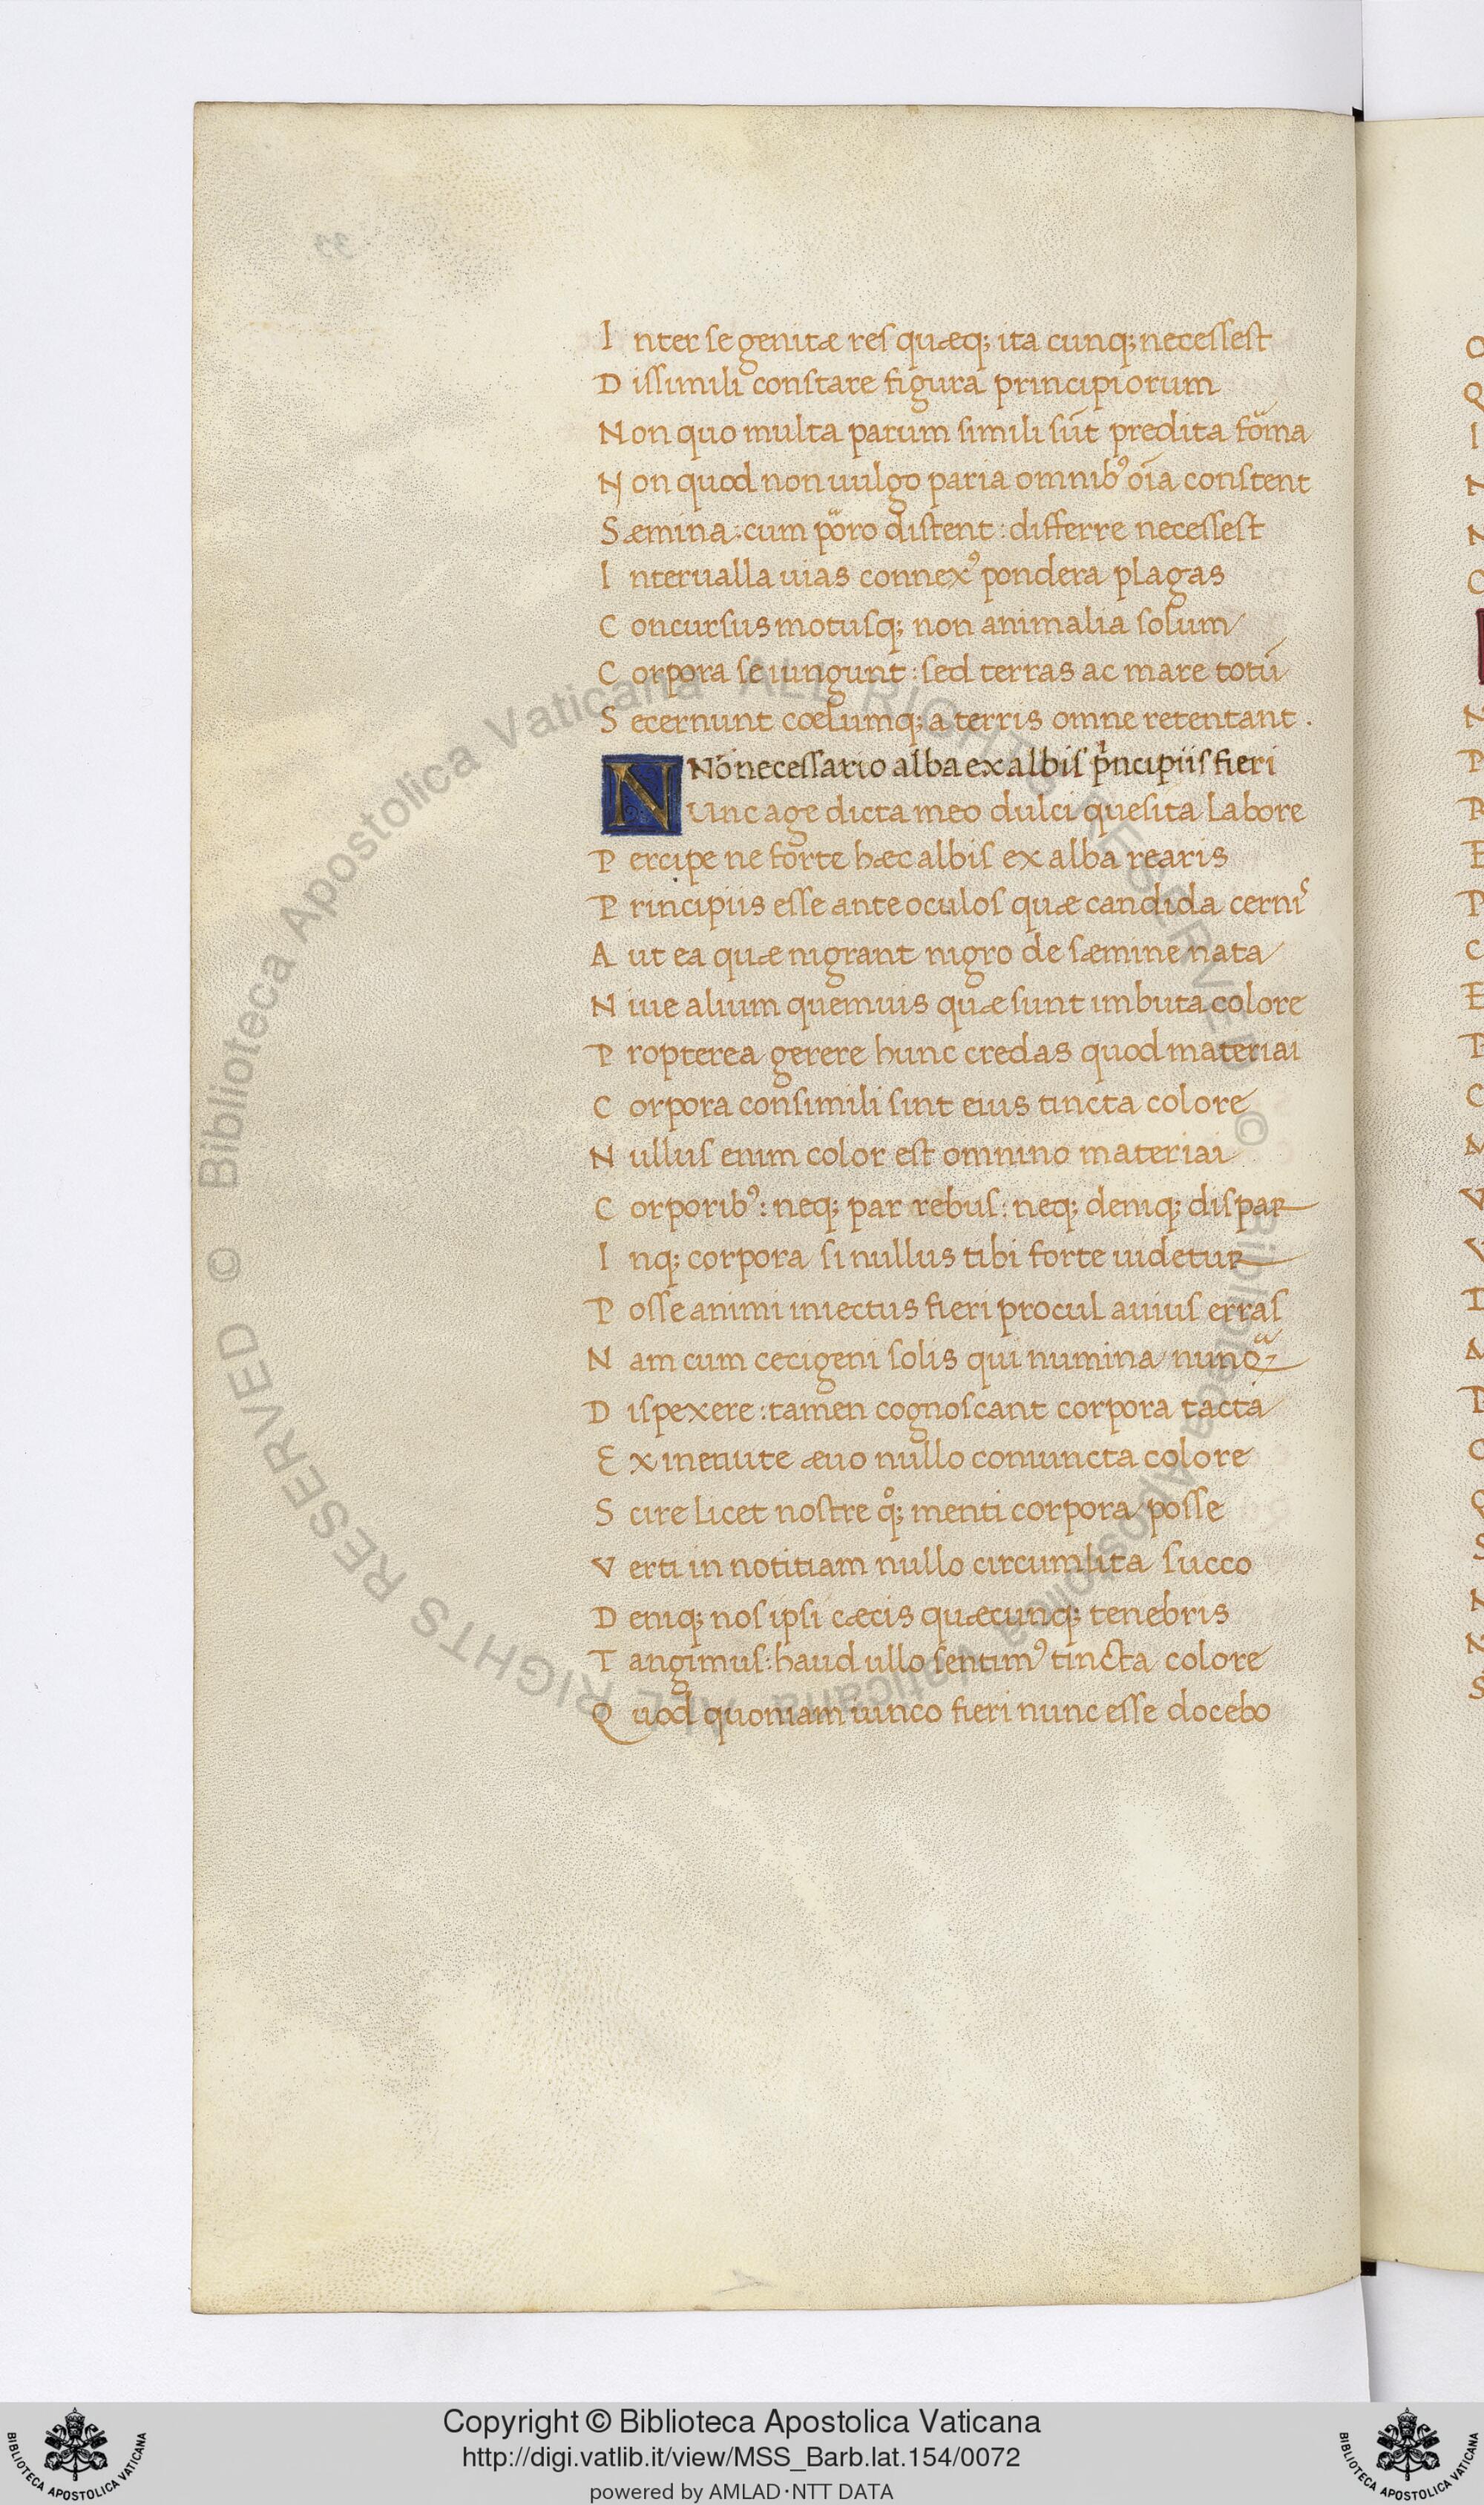 I nter se genitæ res quæq; ita cunq; necessest
D issimili constare figura principiorum
N on quo multa parum simili sūt predita foͣma
N on quod non uulgo paria omnibꝰ oīa constent
S æmina: cum poͣro distent: differre necessest
I nterualla uias connexꝰ pondera plagas
C oncursus motusq; non animalia solum
C orpora se iungunt: sed terras ac mare totū
S ecernunt cœlumq; a terris omne retentant.
N Nō necessario alba ex albis pͥncipiis fieri
Unc age dicta meo dulci quesita labore
P ercipe ne forte hæc albis ex alba rearis
P rincipiis esse ante oculos quæ candida cernis
A ut ea quæ nigrant nigro de sæmine nata
N iue alium quemuis quæ sunt imbuta colore
P ropterea gerere hunc credas quod materiai
C orpora consimili sint eius tincta colore
N ullus enim color est omnino materiai
C orporibꝰ: neq; par rebus: neq; deniq; dispar
I nq; corpora si nullus tibi forte uidetur
P osse animi iniectus fieri procul auius erras
N am cum cecigeni solis qui numina nunqͣ
D ispexere: tamen cognoscant corpora tacta
E x ineuute æuo nullo coniuncta colore
S cire licet nostre qͦ; menti corpora posse
V erti in notitiam nullo circumlita succo
D eniq; nos ipsi cæcis quæcunq; tenebris
T angimus: haud ullo sentimꝰ tincta colore
Q uod quoniam uinco fieri nunc esse docebo
© Biblioteca Apostolica Vaticana ALL RIGHTS RESERVED © Biblioteca Apostolica Vaticana ALL RIGHTS RESERVED
Copyright © Biblioteca Apostolica Vaticana
http://digi.vatlib.it/view/MSS_Barb.lat.154/0072
powered by AMLAD·NTT DATA
BIBLIOTECA APOSTOLICA VATICANA
BIBLIOTECA APOSTOLICA VATICANA